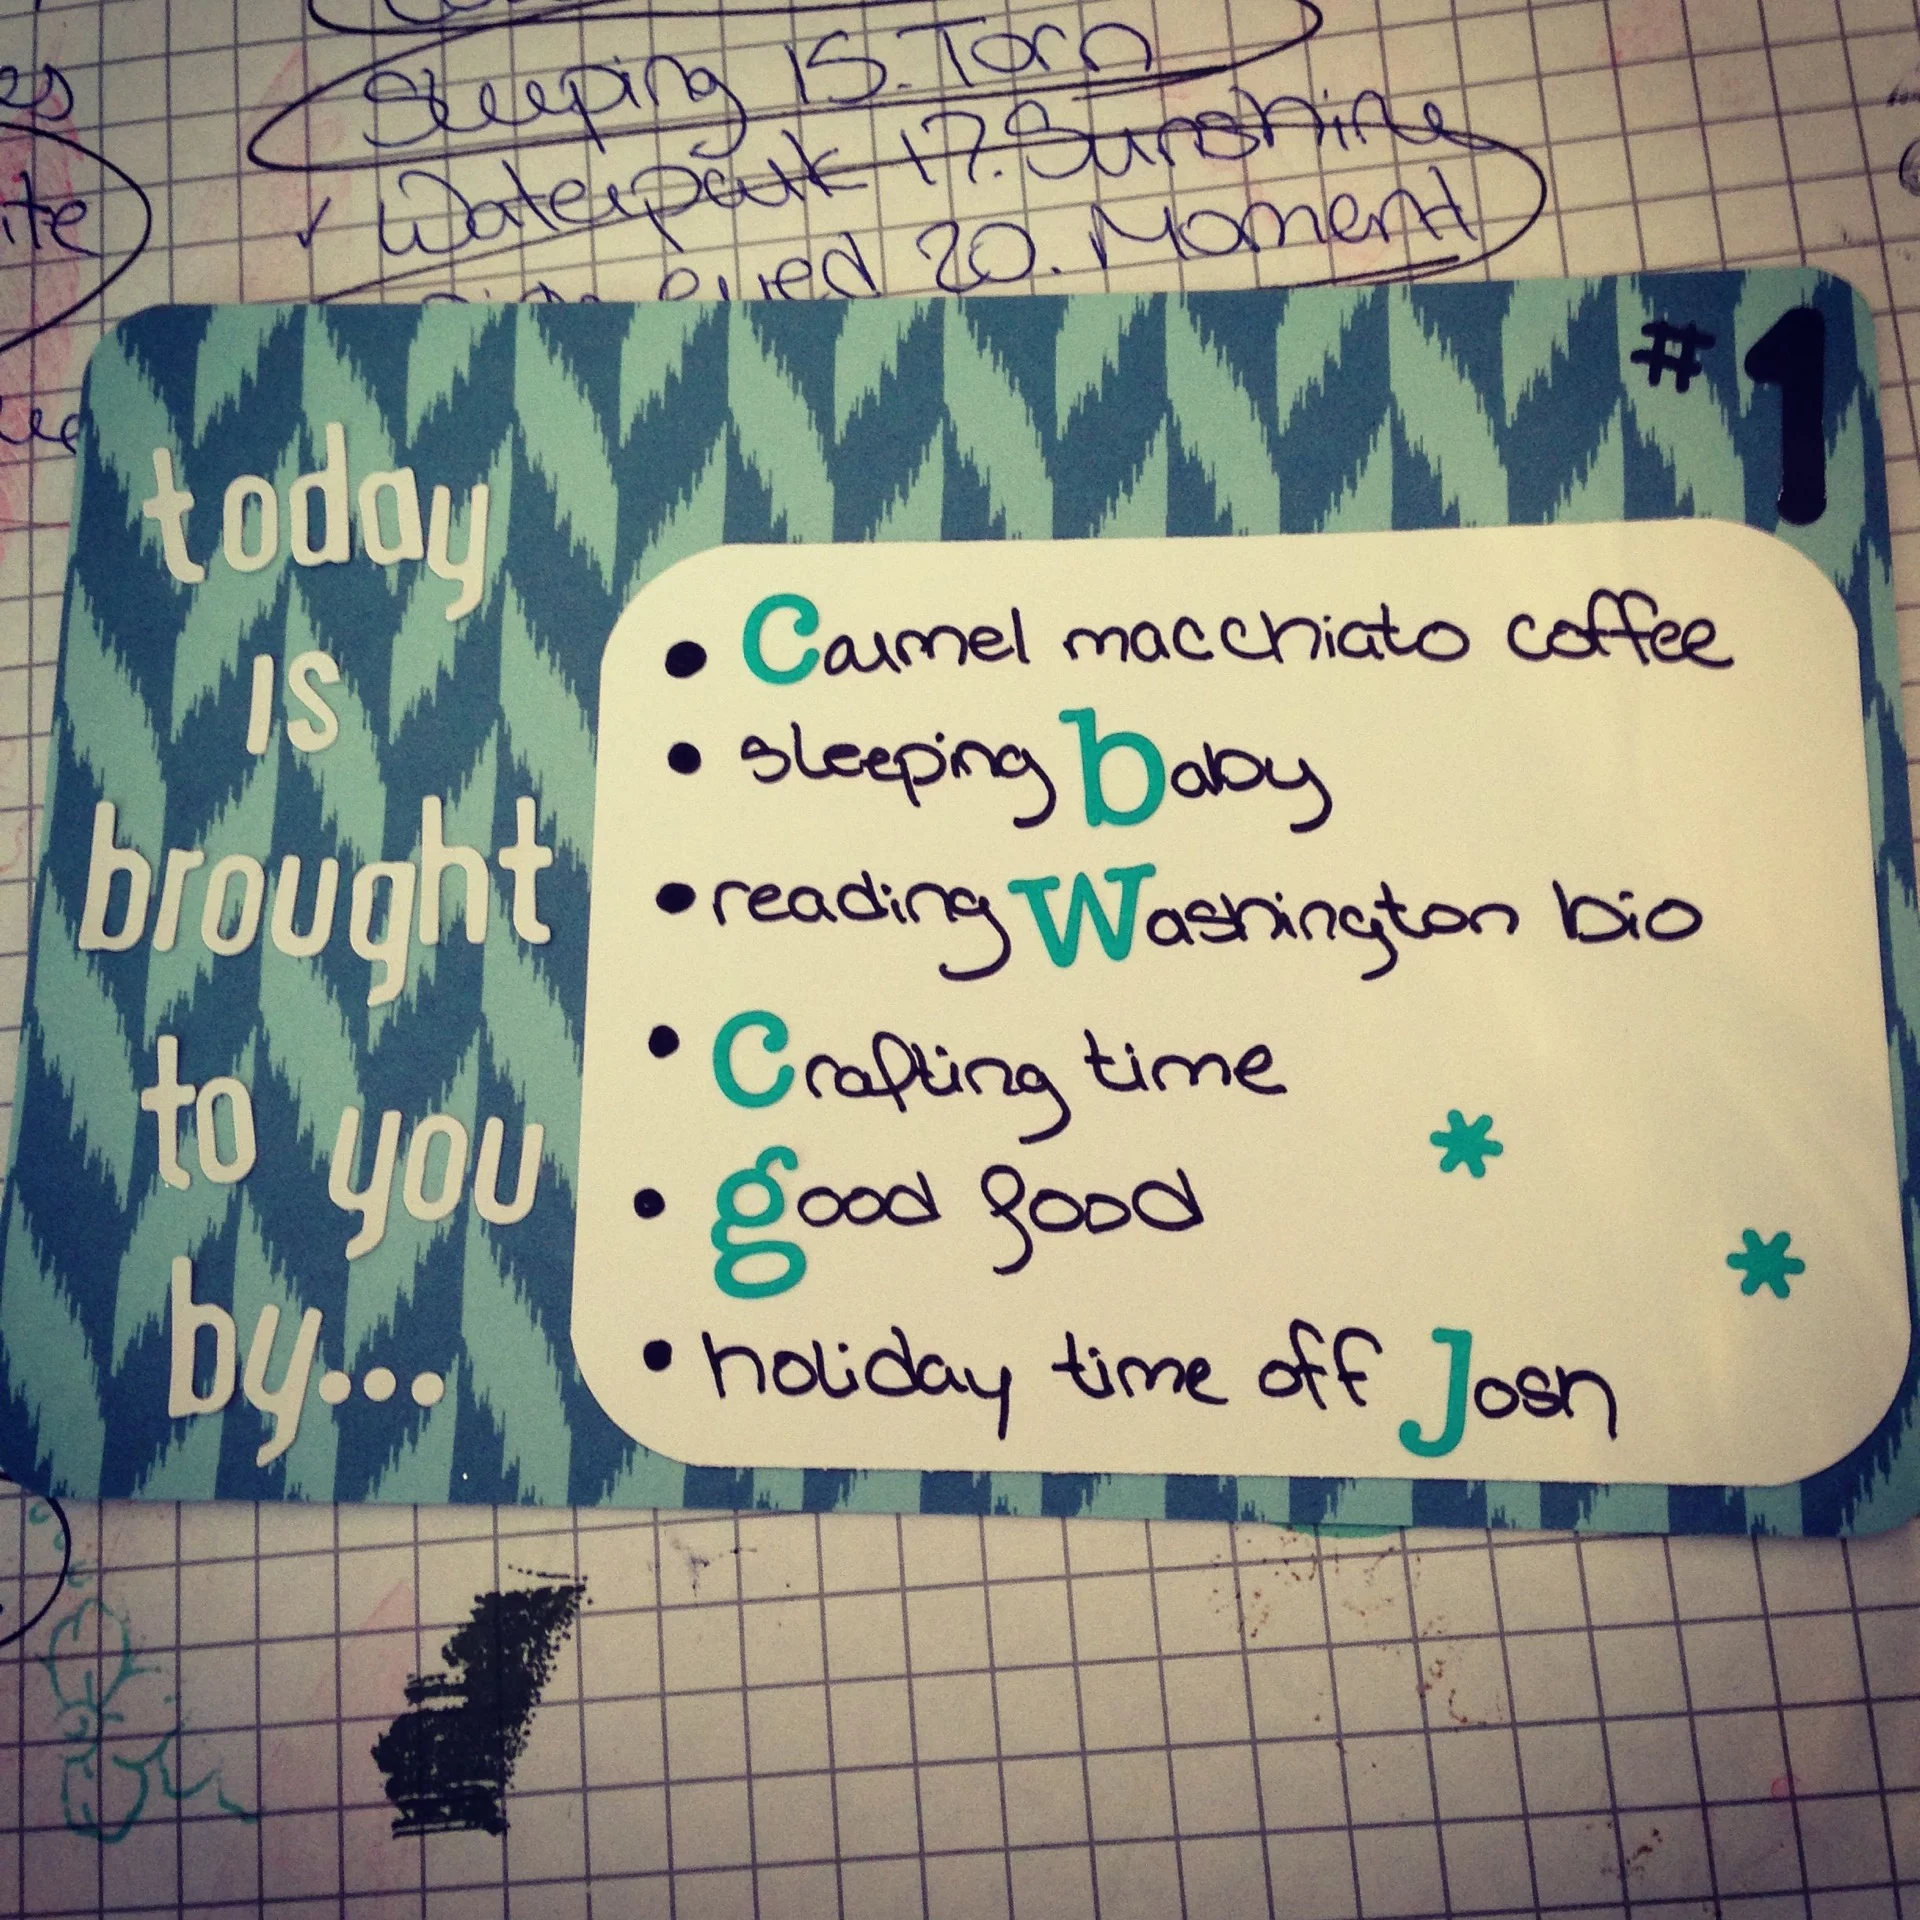 Sleeping 15. Torn
✓ Waterpark 17. Sunshine
eyed 20. Moment
#1
today
is
brought
to you
by...
• Carmel macchiato coffee
• sleeping baby
• reading Washington bio
• Crafting time
• good food
• holiday time off Josh